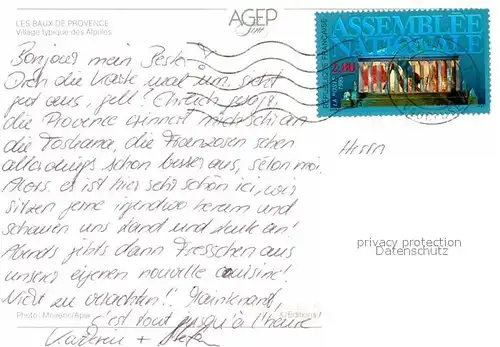 LES BAUX DE PROVENCE
Village typique des Alpilles
AGEP
ASSEMBLÉE
NATIONALE
2,80
RÉPUBLIQUE FRANÇAISE
LA POSTE 1995
Bonjour mein Bester!
Dreh die Karte mal um, sieht
gut aus, gell! Ehrlich
die Provence erinnert mich schon an
die Toskana, die Franzosen sehen
allerdings schon besser aus, selon moi.
Alors es ist hier sehr schön ici, wir
sitzen gerne irgendwo herum und
schauen uns Land und Leute an!
Abends gibts dann Fresschen aus
unserer eigenen nouvelle cuisine!
Nicht zu verachten!! Maintenant,
c'est tout jusqu'à l'heure!
Herrn
privacy protection
Datenschutz
Editions